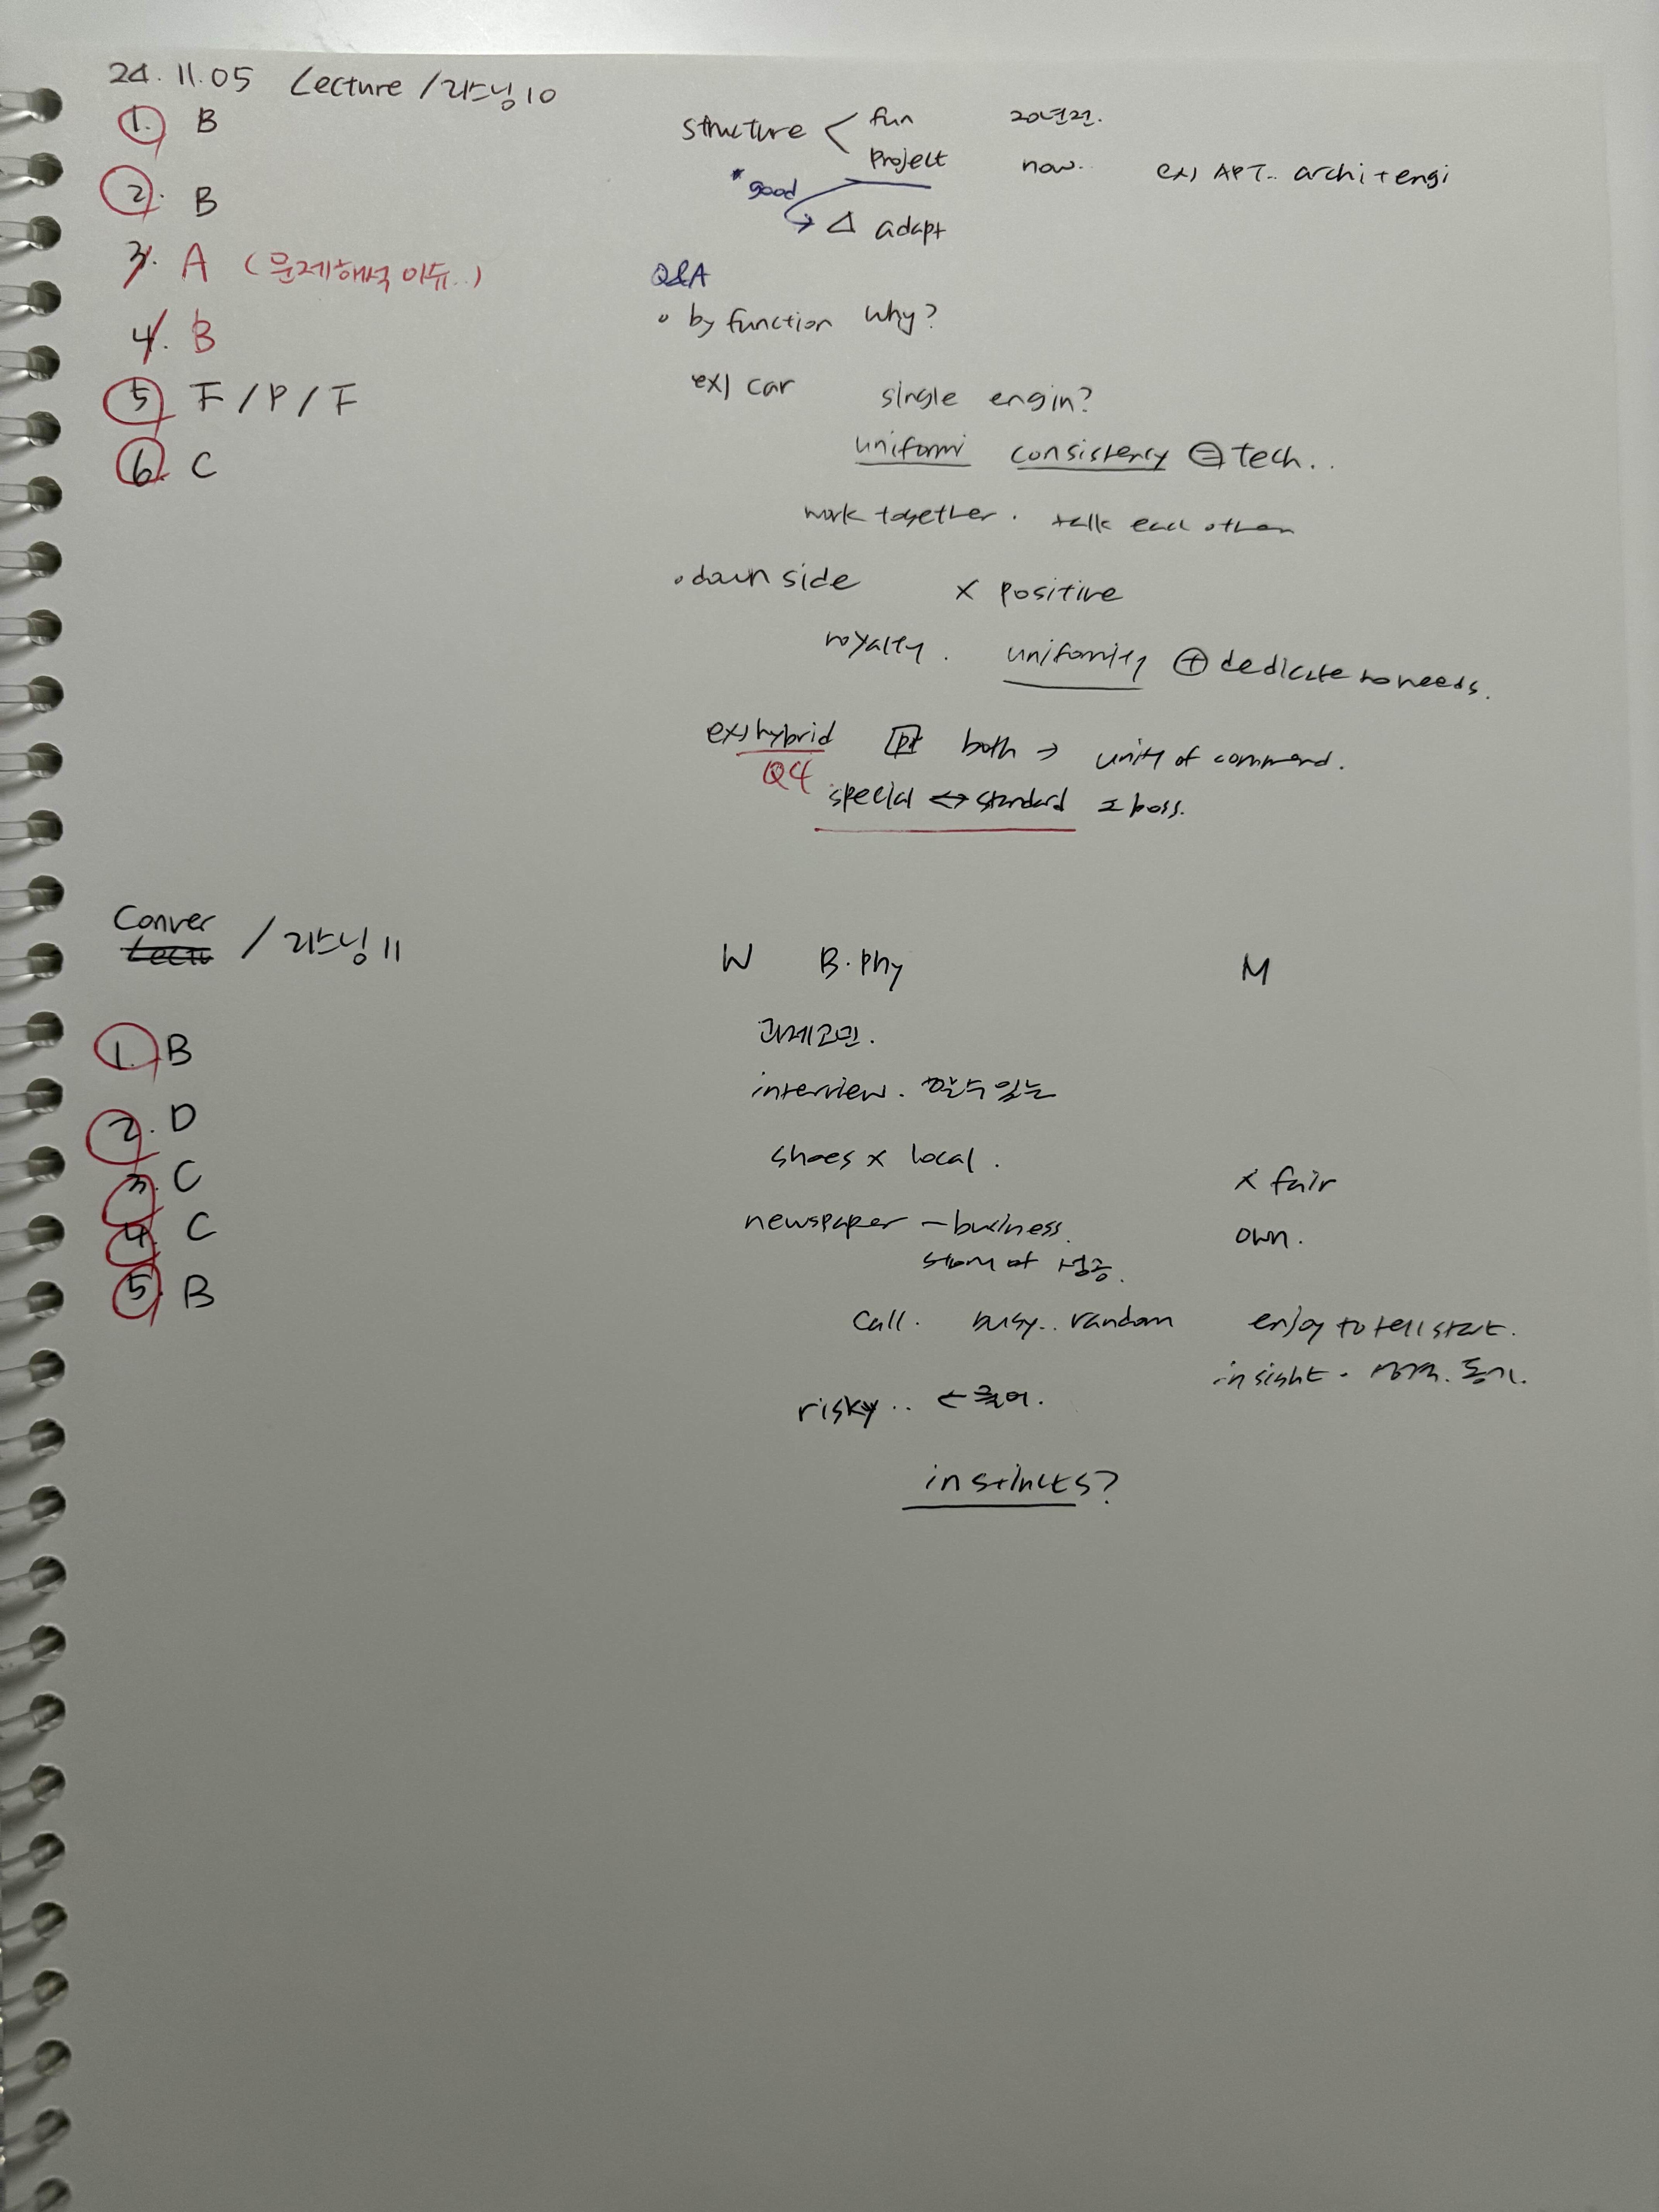 24. 11. 05 Lecture / 리스닝 10
1. B
2. B
3. A (문제해석 이슈..)
4. B
5 F / P / F
6. C
structure < fun 20년전.
project now.. ex) APT.. archi + engi
* good
→ △ adapt
Q&A
• by function why?
ex) car single engin?
uniformi consistency ⊖ tech..
work together. talk each other
• down side x positive
royalty. uniformity ⊕ dedicate to needs.
ex) hybrid both → unity of command.
Q4
special ↔ standard 2 boss.
Conver / 리스닝 11
1. B
2. D
3. C
4. C
5. B
W B. phy M
과제고민.
interview. 할수있는
shoes x local.
x fair
newspaper - business.
own.
story of 성공.
call. busy.. random enjoy to tell start.
insight. 동기.
risky.. ←
instincts?